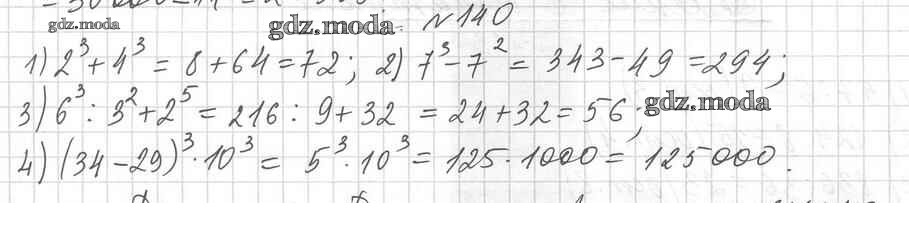 gdz.moda gdz.moda № 140
1) 2³ + 4³ = 8 + 64 = 72; 2) 7³ - 7² = 343 - 49 = 294;
3) 6³ : 3² + 2⁵ = 216 : 9 + 32 = 24 + 32 = 56; gdz.moda
4) (34 - 29)³ · 10³ = 5³ · 10³ = 125 · 1000 = 125000.